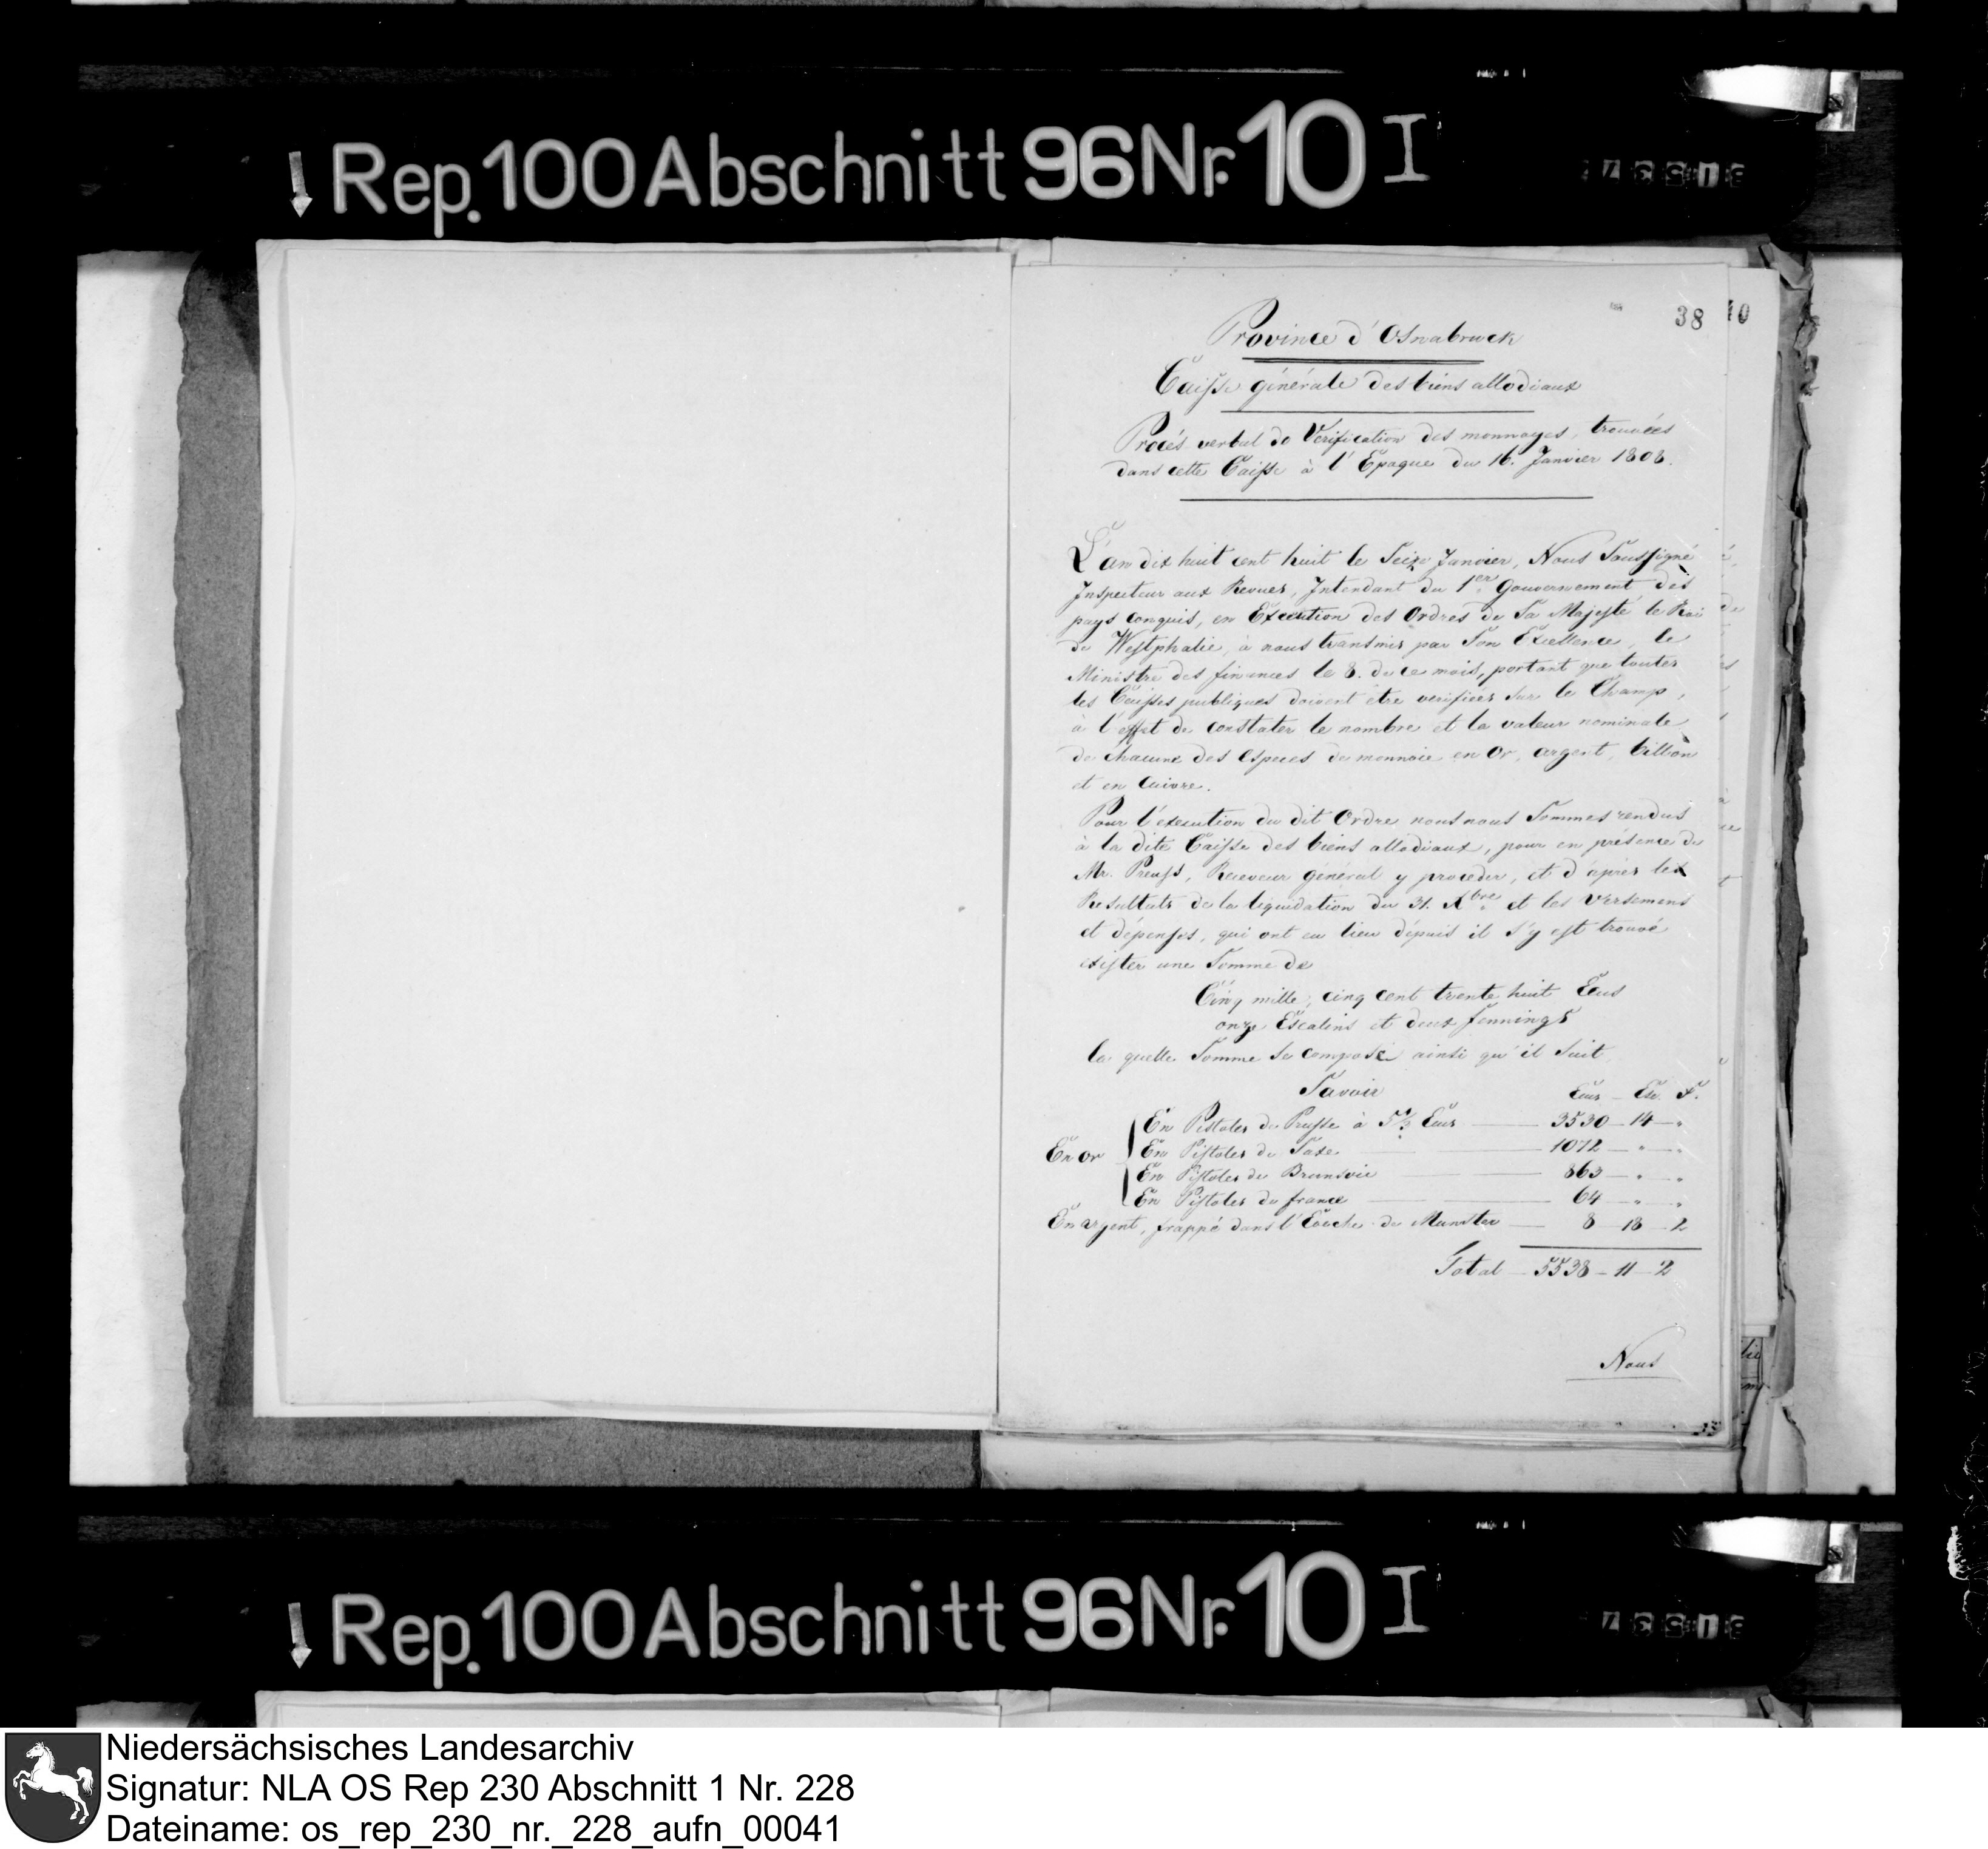 Rep. 100 Abschnitt 96 Nr. 10 I
38
40
Province d'Osnabruck
Caisse générale des biens allodiaux
Procés verbal de Verification des monnoyes, trouvées
dans cette Caisse à l'Epoque du 16. Janvier 1808.
L'an dix huit cent huit le Seize Janvier, Nous Soussigné
Inspecteur aux Revues, Intendant du 1er Gouvernement des
pays conquis, en Exécution des Ordres de Sa Majesté le Roi
de Westphalie, à nous transmis par Son Excellence, le
Ministre des finances le 8. de ce mois, portant que toutes
les Caisses publiques doivent être verifiées Sur le Champ,
à l'effet de constater le nombre et la valeur nominale
de chacune des Especes de monnoie en Or, argent, billon
et en Cuivre.
Pour l'execution du dit Ordre nous nous Sommes rendus
à la dite Caisse des biens allodiaux, pour en présence de
Mr. Preuss, Receveur général y proceder, et d'après les
Resultats de la liquidation du 31. Xbre et les Versemens
et dépenses, qui ont eu lieu dépuis il s'y est trouvé
exister une Somme de
Cinq mille, cinq cent trente huit Ecus
onze Escalins et deux fennings
la quelle Somme se compose ainsi qu'il Suit
Savoir
Ecus - Esc. F.
En or
En Pistoles de Prusse à 5 1/3 Ecus — 3530 - 14 - "
En Pistoles de Saxe — 1072 - " - "
En Pistoles de Brunsvic — 863 - " - "
En Pistoles de france — 64 - " - "
En argent, frappé dans l'Evêche de Munster — 8 - 18 - 2
Total - 5538 - 11 - 2
Nous
Rep. 100 Abschnitt 96 Nr. 10 I
Niedersächsisches Landesarchiv
Signatur: NLA OS Rep 230 Abschnitt 1 Nr. 228
Dateiname: os_rep_230_nr._228_aufn_00041